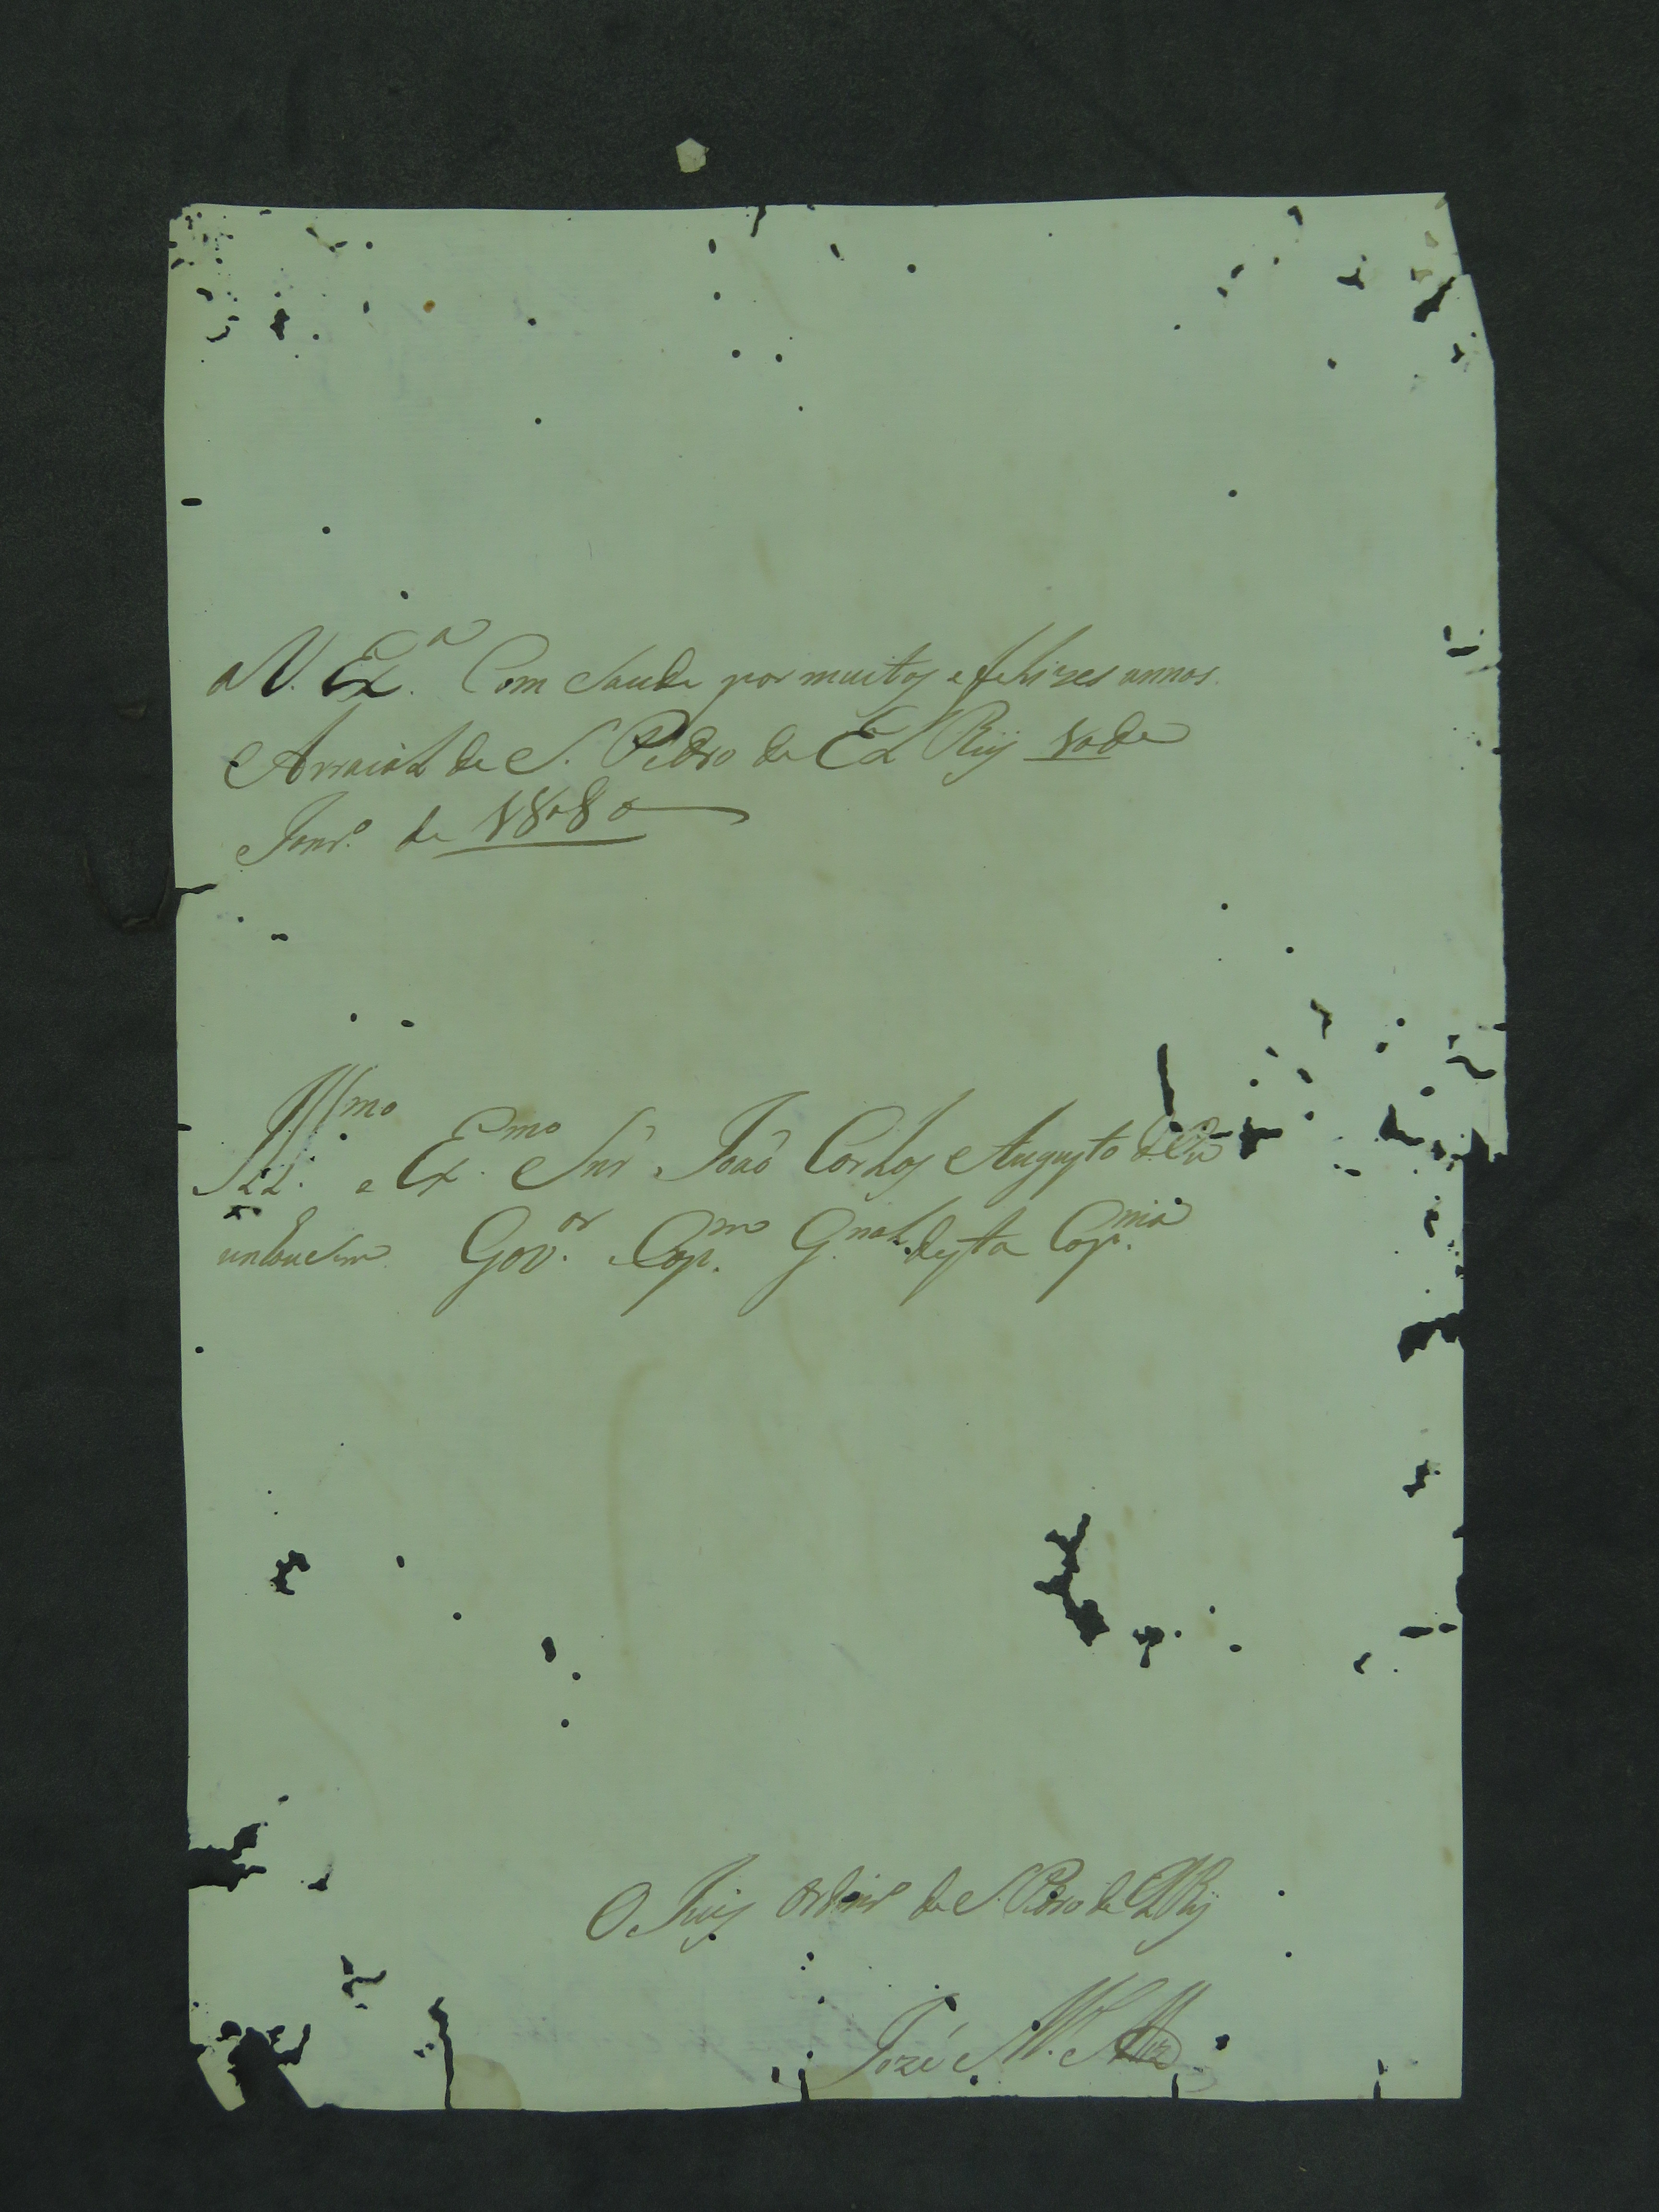 a V. Ex.ª Com Saude por muitos e felizes annos.
Arraial de S. Pedro de El Rey 10 de
Janr.º de 1808
Ill.mo e Ex.mo Snr João Carlos Augusto de
Gov.or Cap.m G.nal desta Cap.nia
O Juiz Ordinr.º de S. Pedro de El Rey
Jozé M.